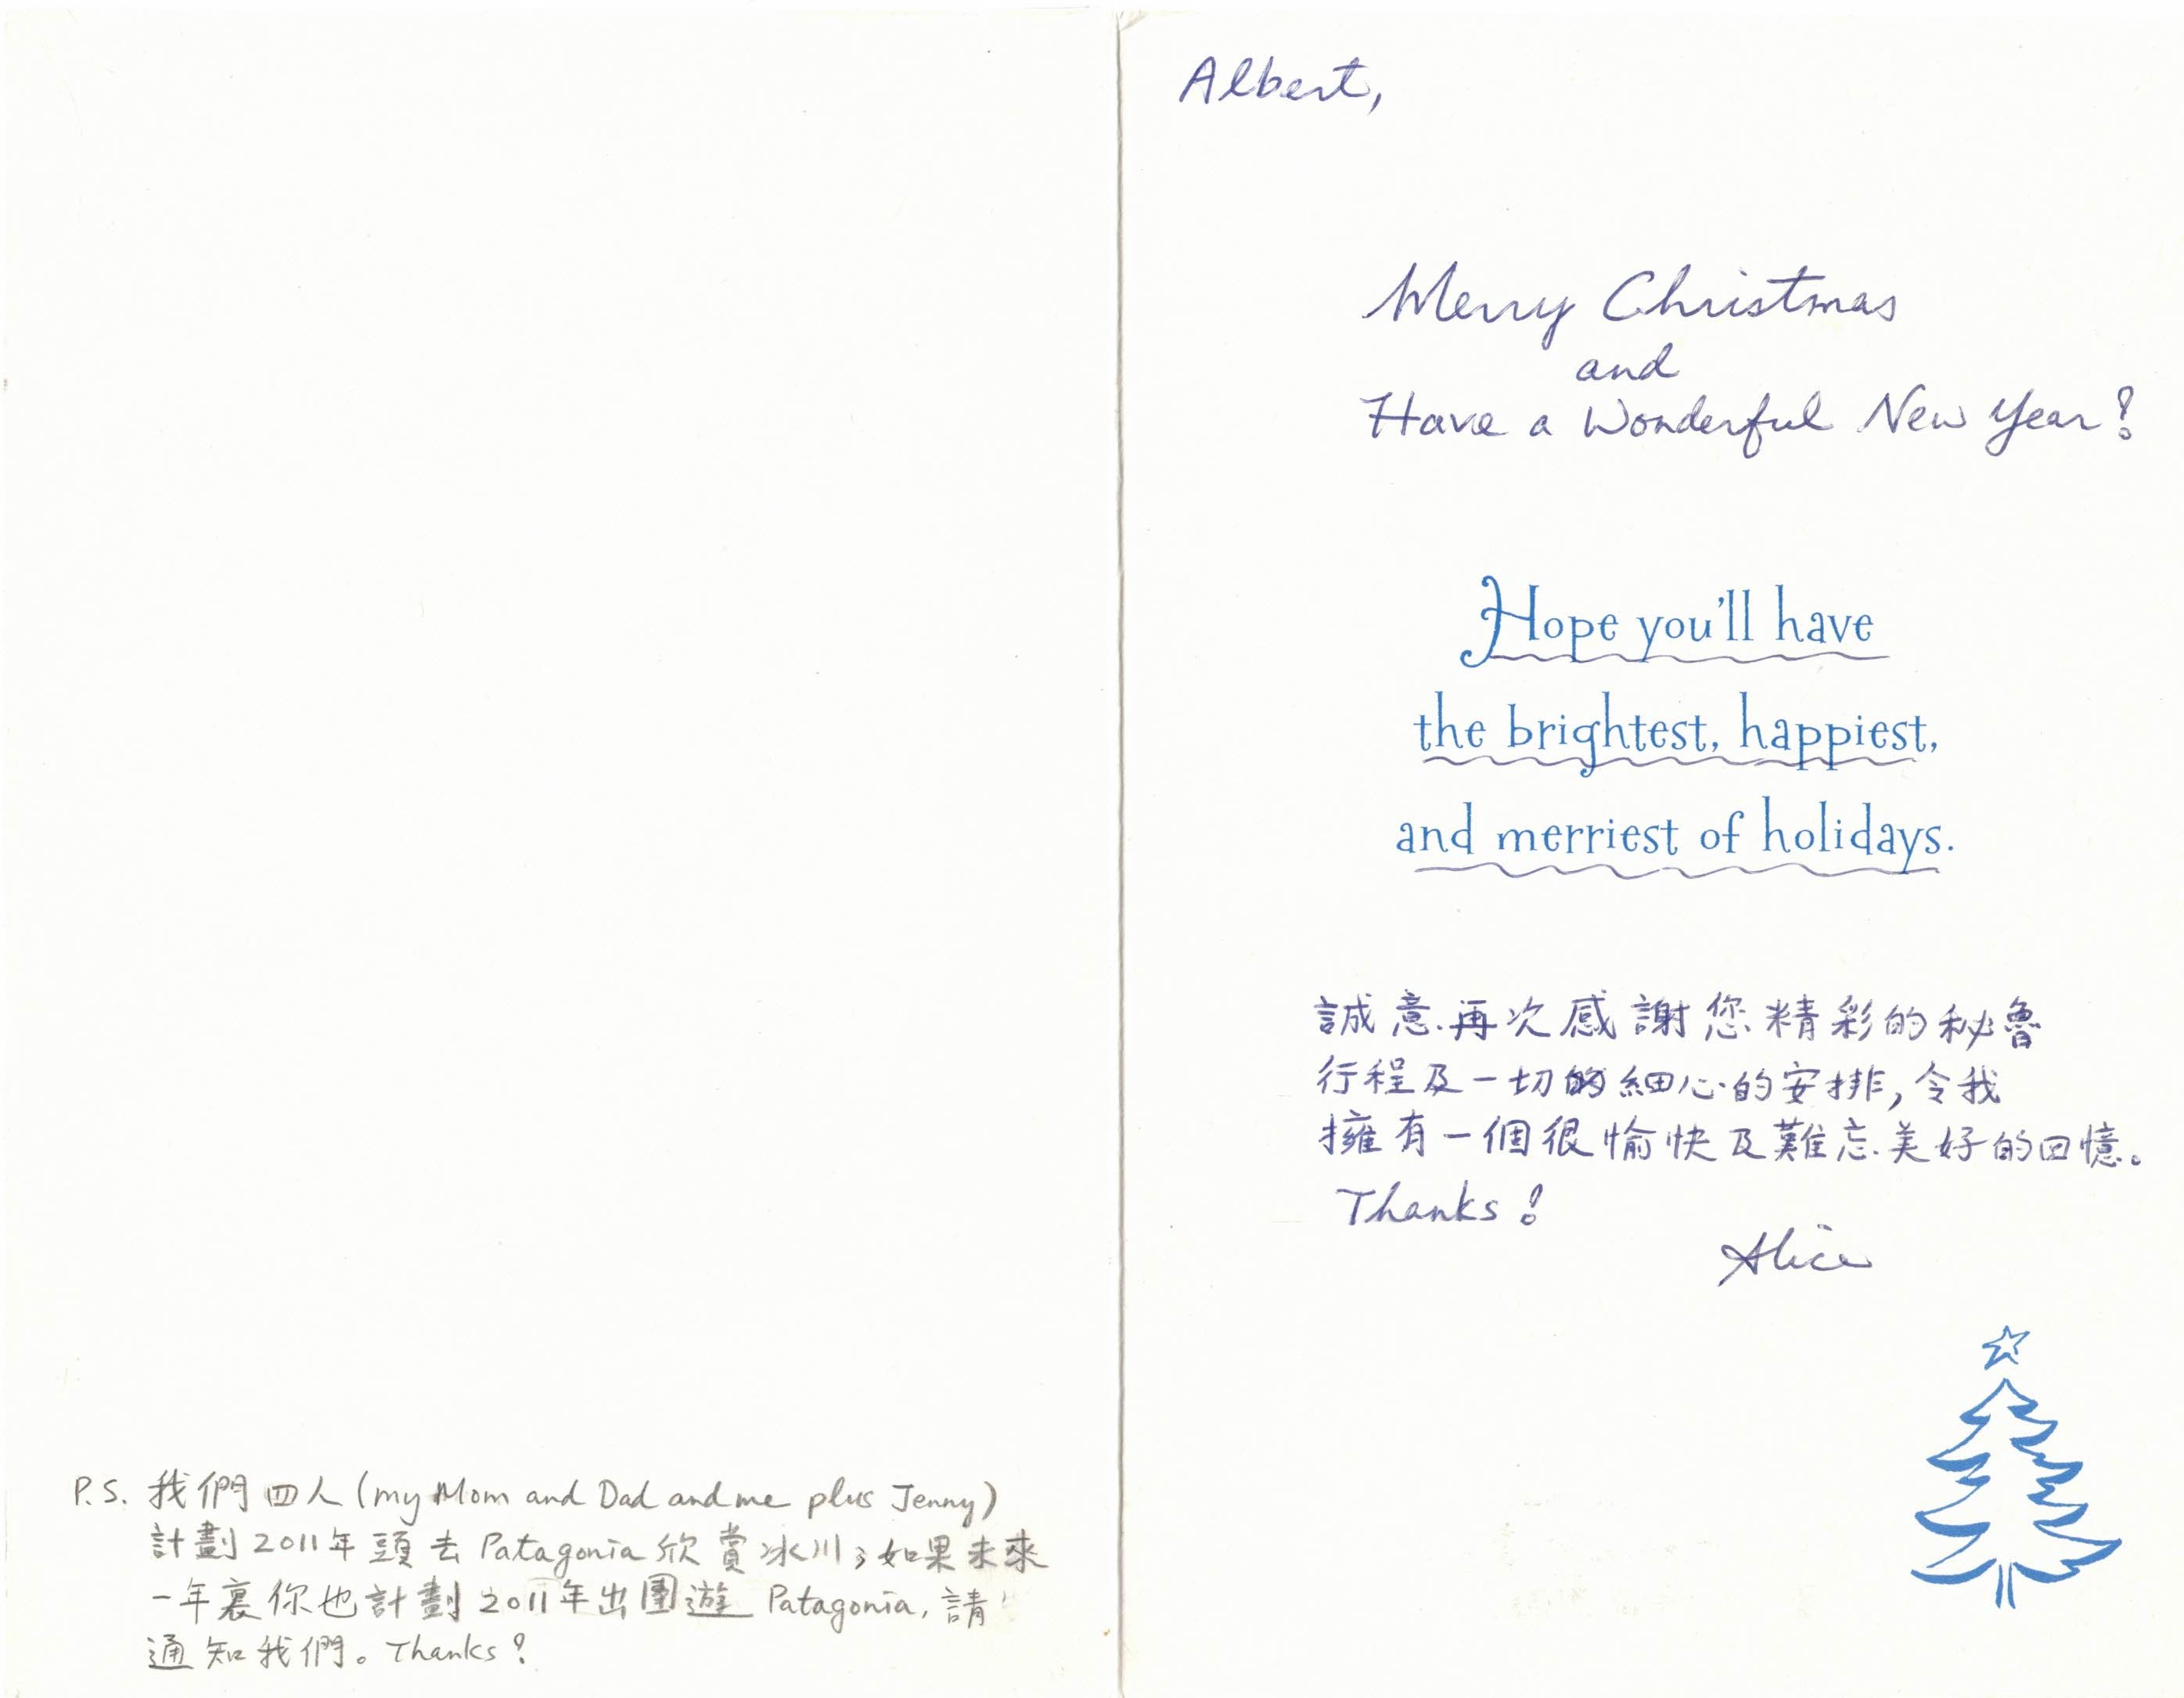 P.S. 我們四人 (my Mom and Dad and me plus Jenny)
計劃2011年頭去Patagonia欣賞冰川；如果未來
一年裏你也計劃2011年出團遊Patagonia, 請
通知我們。Thanks!
Albert,
Merry Christmas
and
Have a Wonderful New Year!
Hope you'll have
the brightest, happiest,
and merriest of holidays.
誠意再次感謝您精彩的秘魯
行程及一切的細心的安排, 令我
擁有一個很愉快及難忘美好的回憶。
Thanks!
Alice